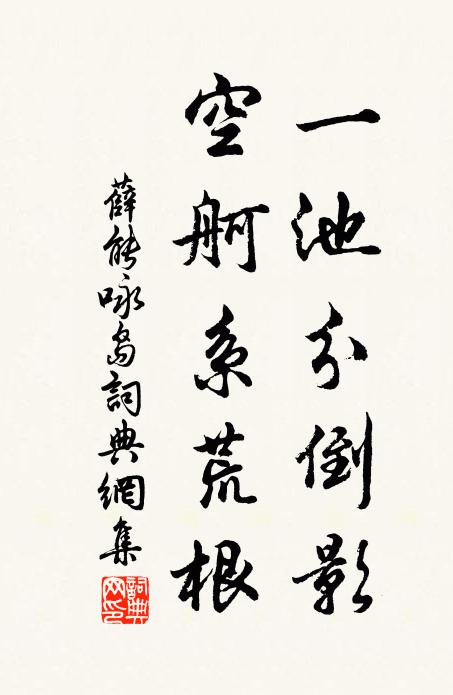 一池分倒影
空舸系荒根
薛能咏岛詞典網集
詞典网印